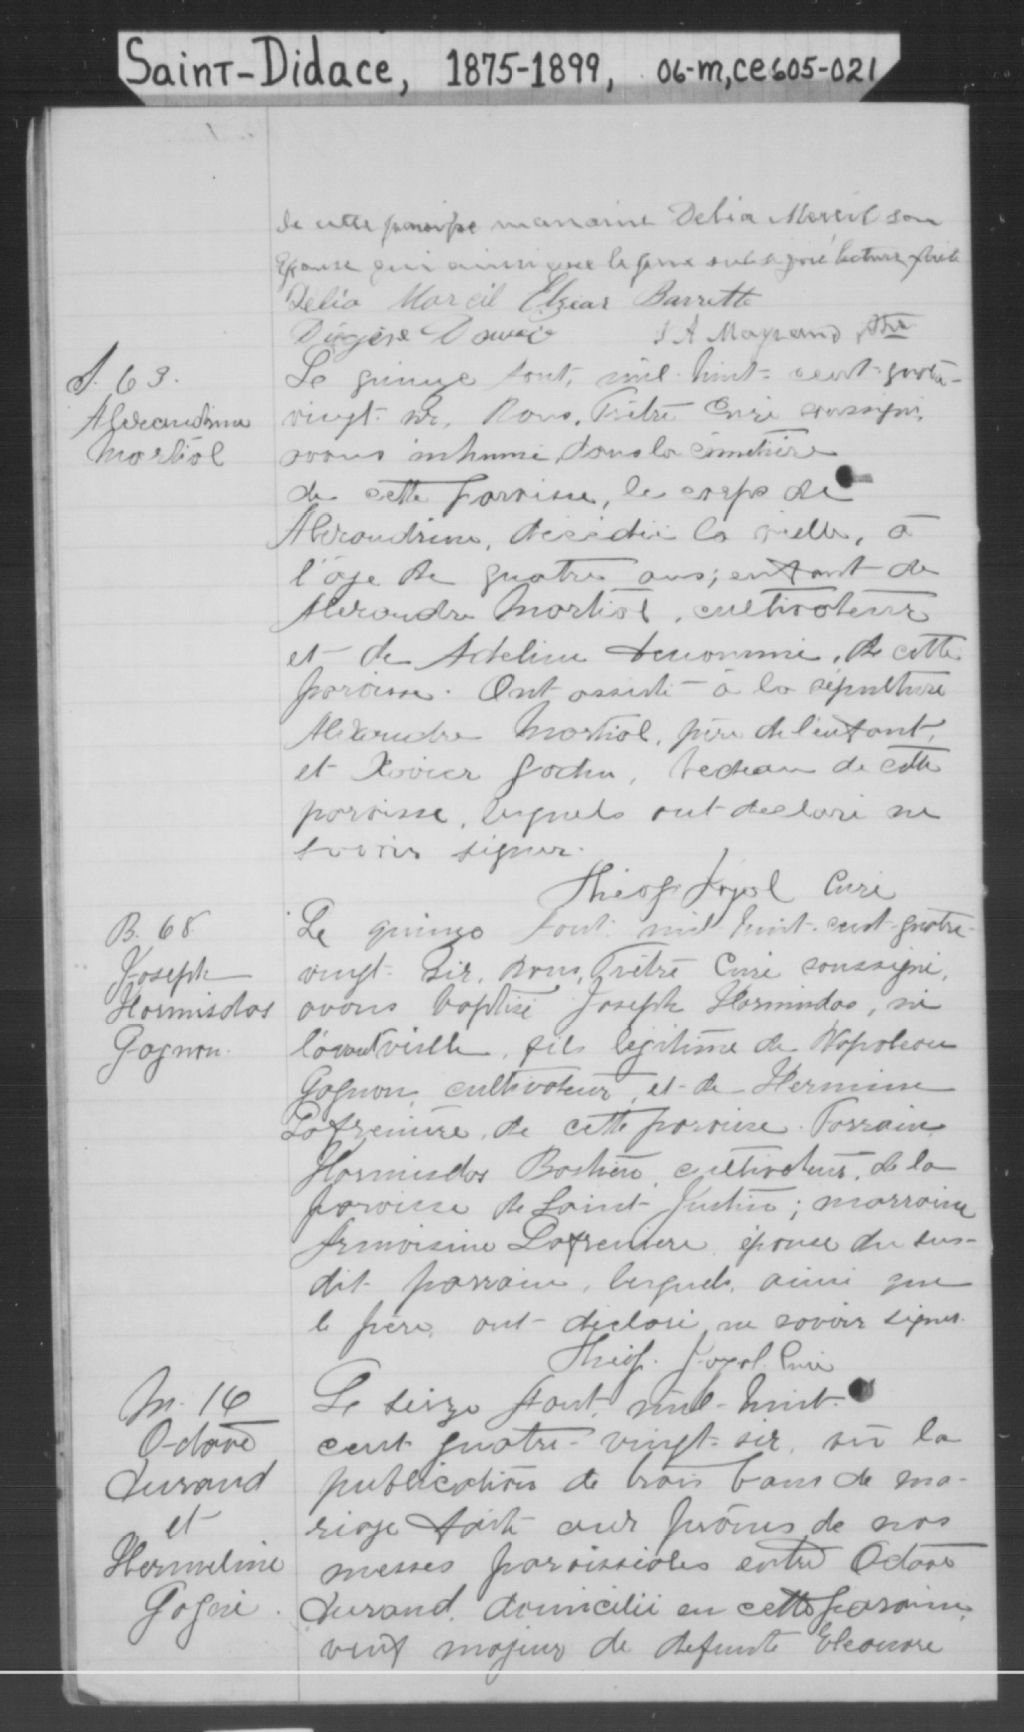 Saint-Didace, 1875-1899, 06-m,ce605-021
de cette paroisse marraine Delia Marcil son
Epouse qui ainsi que le père ont signé lecture faite
Delia Marcil Elzear Barrette
J A Mayrand Ptre
S. 63.
Alexandrina
Martial
Le quinze Aout, mil-huit-cent-quatre-
vingt-six, Nous, Prêtre Curé soussigné,
avons inhumé dans le cimetière
de cette paroisse, le corps de
Alexandrina, décédée la vielle, à
l'âge de quatre ans; enfant de
Alexandre Martial, cultivateur
et de Adeline Venomme, de cette
paroisse. Ont assisté à la sépulture
Alexandre Martial, père de l'enfant,
et Xavier Godin, bedeau de cette
paroisse, lesquels ont déclaré ne
savoir signer.
Théop. Joyal Curé
B. 68
Joseph
Hormisdas
Gagnon.
Le quinze Aout mil-huit-cent-quatre-
vingt-six, Nous, Prêtre Curé soussigné,
avons baptisé Joseph Hormisdas, né
l'avant vielle, fils légitime de Napoleon
Gagnon, cultivateur, et de Hermine
Lafrenière, de cette paroisse. Parrain
Hormisdas Bastien, cultivateur, de la
paroisse de Saint-Justin; marraine
Armoisine Lafreniere, épouse du sus-
dit parrain, lesquels, ainsi que
le père, ont déclaré ne savoir signer.
Théop. Joyal. Curé
M. 14
Octave
Durand
et
Hermeline
Gagné.
Le seize Aout, mil-huit-
cent-quatre-vingt-six, vu la
publication de trois bans de ma-
riage faite aux prônes de nos
messes paroissiales entre Octave
Durand, domicilié en cette paroisse,
veuf majeur de defunte Eleonore